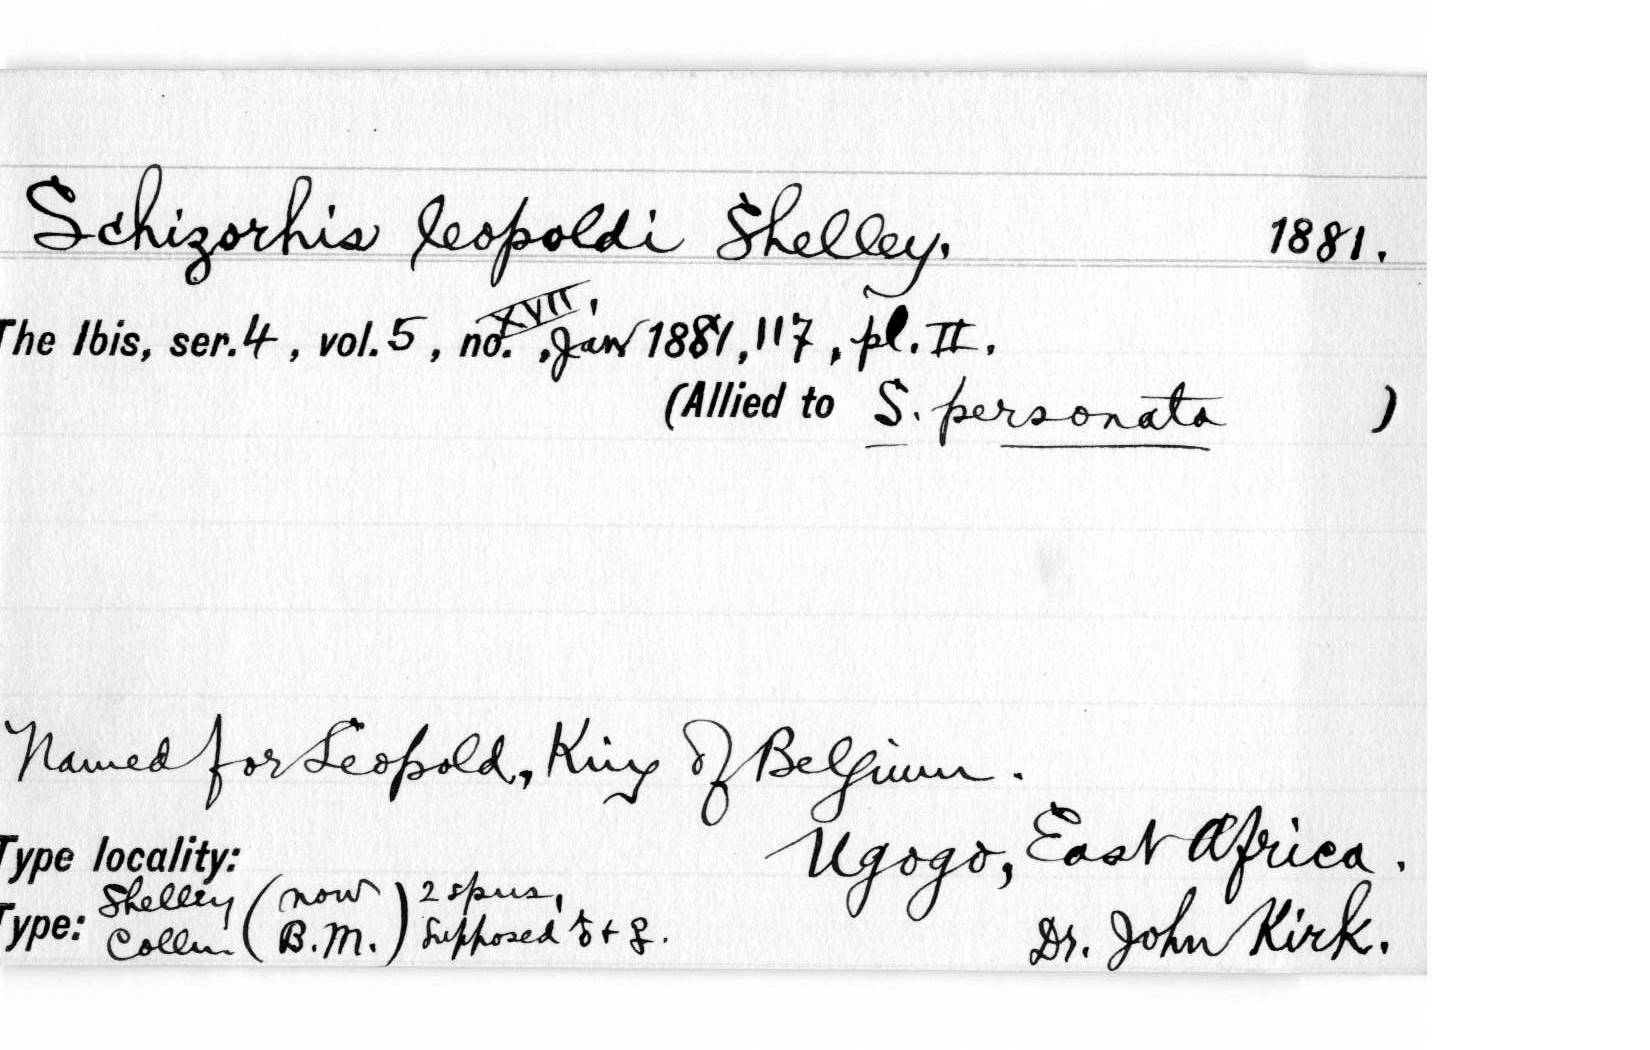 Schizorhis leopoldi Shelley. 1881.
The Ibis, ser.4, vol.5, no. XVII, Jan 1881, 117, pl. II.
(Allied to S. personata )
Named for Leopold, King of Belgium.
Type locality: Ugogo, East Africa.
Type: Shelley Colln (now B.M.) 2 spms, supposed ♂ + ♀. Dr. John Kirk.